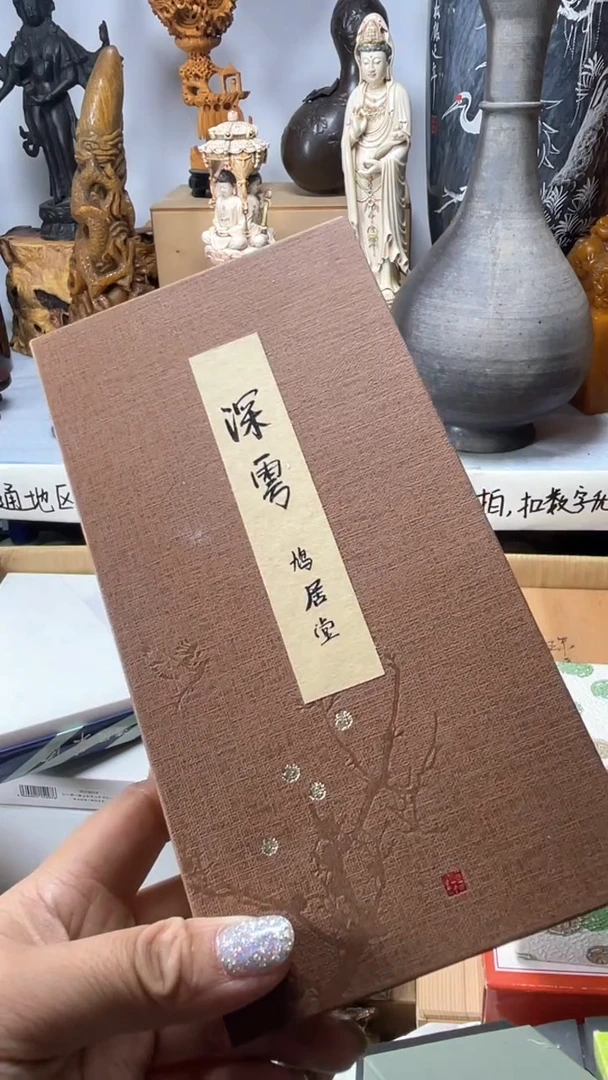 深雲
鳩居堂
通地区
拍,扣数字